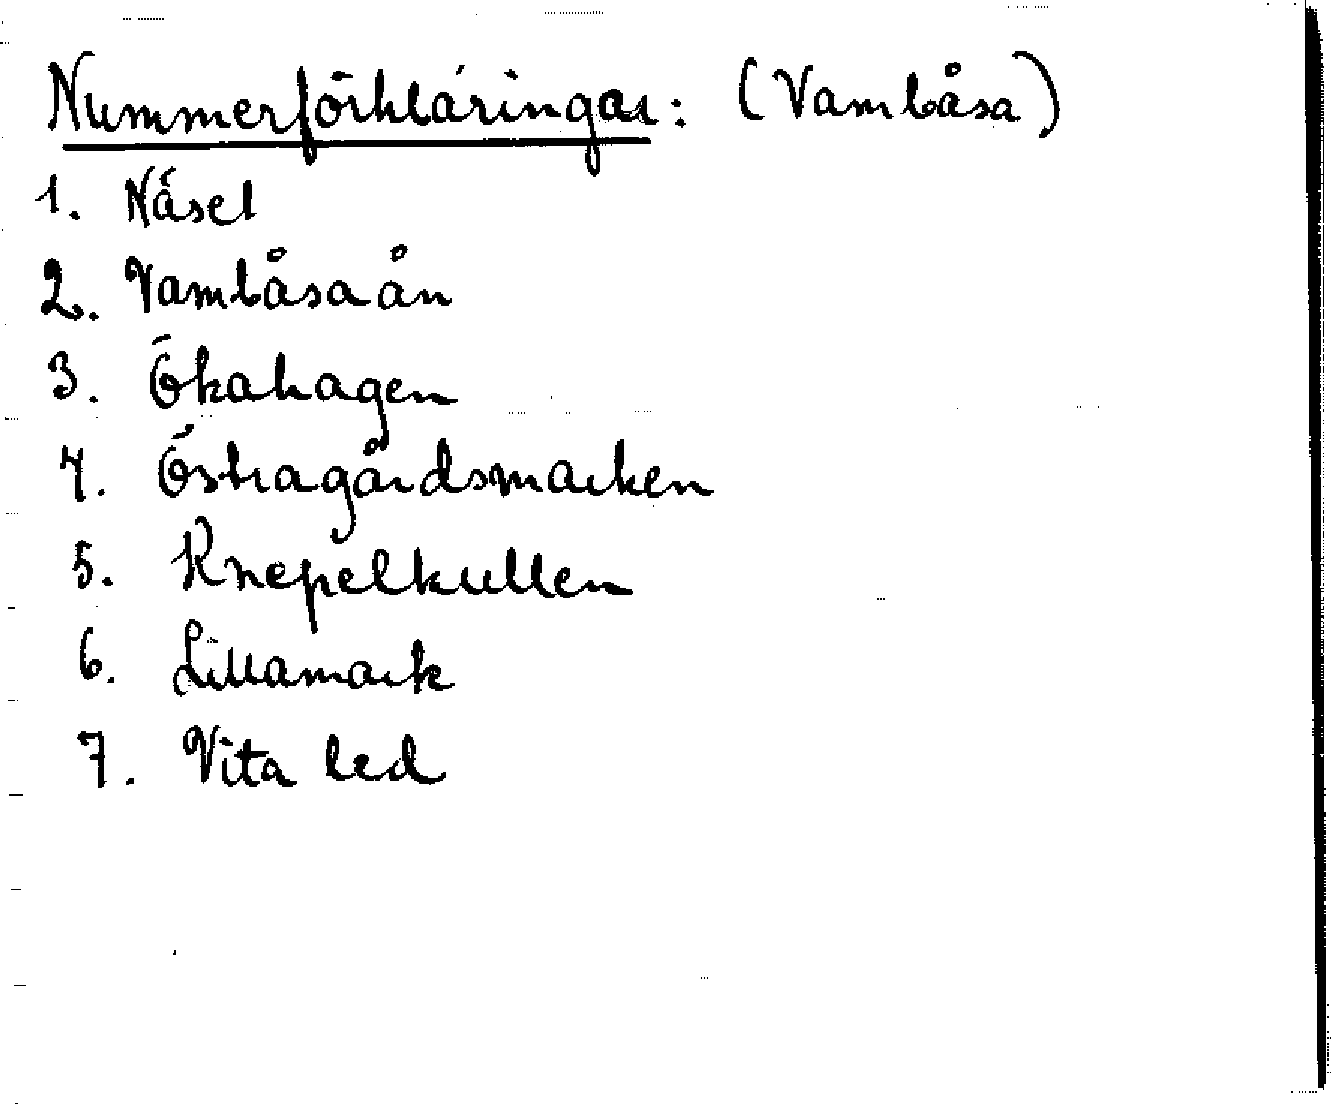 Nummerförklaringar: (Vambåsa)
1. Näset
2. Vambåsaån
3. Ökahagen
4. Östragårdsmarken
5. Knepelkullen
6. Lillamark
7. Vita led